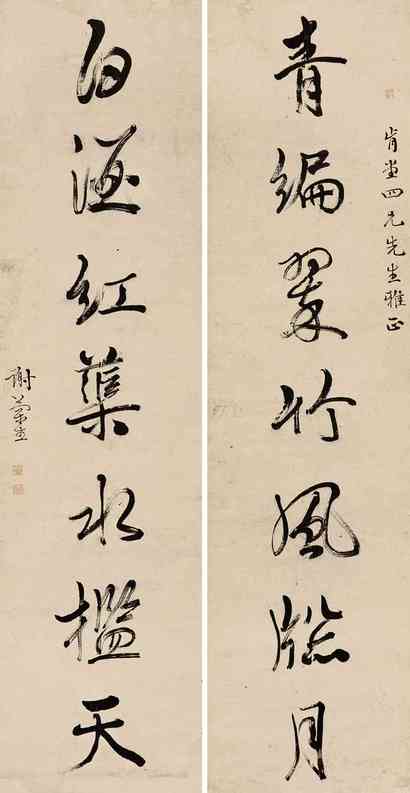 肯堂四兄先生雅正
青編翠竹風牕月
白漚紅蕖水檻天
謝蘭生